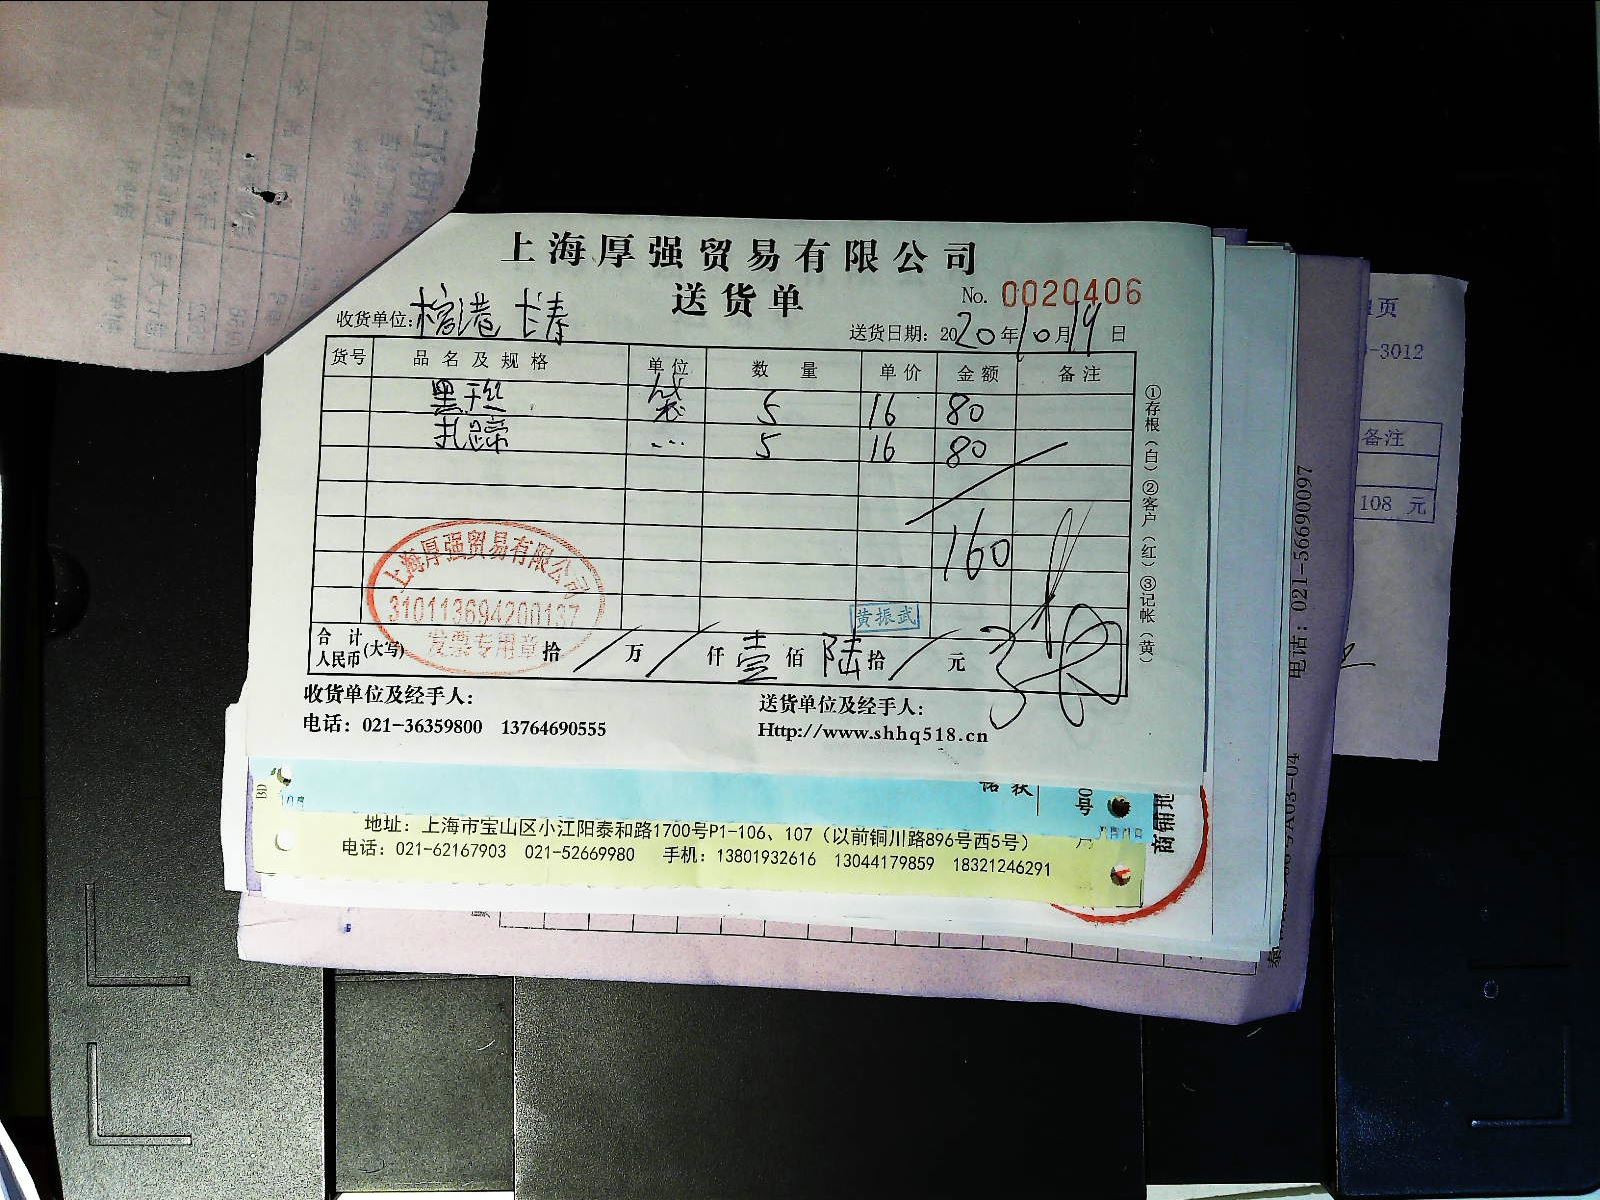 上海厚强贸易有限公司
送货单
No. 0020406
收货单位: 长寿
送货日期: 2020年10月19日
货号 品名及规格 单位 数量 单价 金额 备注
黑干丝 袋 5 16 80
扎蹄 ... 5 16 80
160
①存根(白)②客户(红)③记帐(黄)
上海厚强贸易有限公司
310113694200137
发票专用章
黄振武
合计人民币(大写) 拾 / 万 / 仟 壹 佰 陆 拾 / 元
收货单位及经手人:
送货单位及经手人:
电话: 021-36359800 13764690555
Http://www.shhq518.cn
地址: 上海市宝山区小江阳泰和路1700号P1-106、107 (以前铜川路896号西5号)
电话: 021-62167903 021-52669980 手机: 13801932616 13044179859 18321246291
商铺地
电话: 021-56690097
页
-3012
备注
108 元